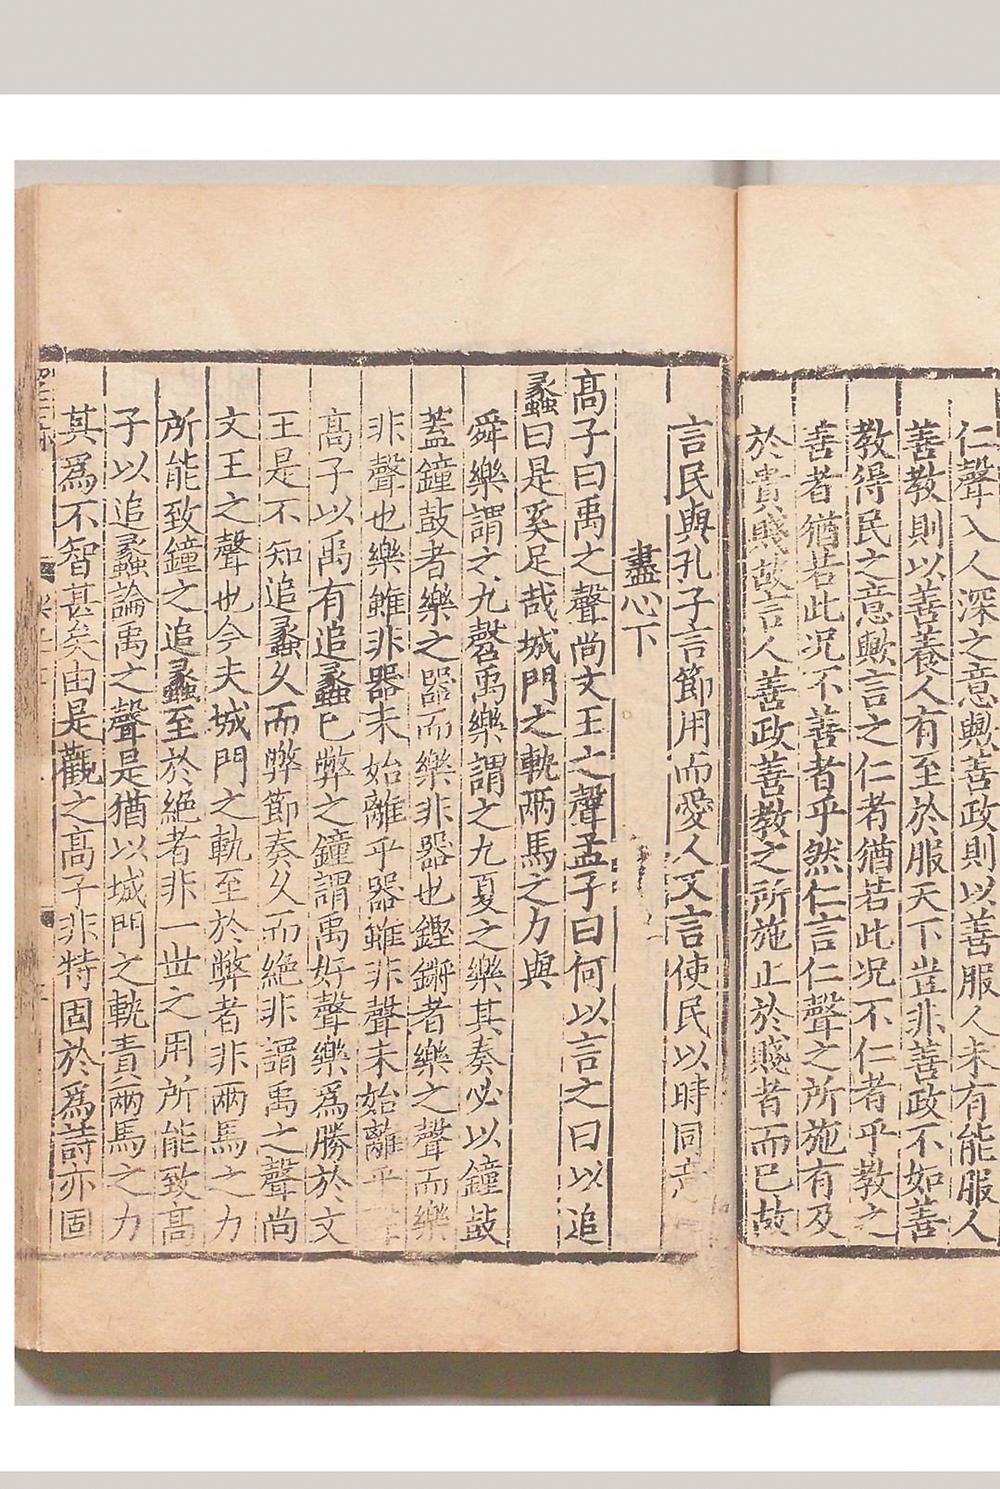 仁聲入人深之意歟善政則以善服人未有能服人
善教則以善養人有至於服天下豈非善政不如善
教得民之意歟言之仁者猶若此况不仁者乎教之
善者猶若此况不善者乎然仁言仁聲之所施有及
於貴賤故言人善政善教之所施止於賤者而已故
言民與孔子言節用而愛人又言使民以時同意
盡心下
髙子曰禹之聲尚文王之聲孟子曰何以言之曰以追
蠡曰是奚足哉城門之軌兩馬之力與
舜樂謂之九磬禹樂謂之九夏之樂其奏必以鐘鼓
蓋鐘鼓者樂之器而樂非器也鏗鏘者樂之聲而樂
非聲也樂雖非器未始離乎器雖非聲未始離乎
髙子以禹有追蠡已弊之鐘謂禹好聲樂爲勝於文
王是不知追蠡久而弊節奏久而絶非謂禹之聲尚
文王之聲也今夫城門之軌至於弊者非兩馬之力
所能致鐘之追蠡至於絶者非一世之用所能致髙
子以追蠡論禹之聲是猶以城門之軌責兩馬之力
其爲不智甚矣由是觀之髙子非特固於爲詩亦固